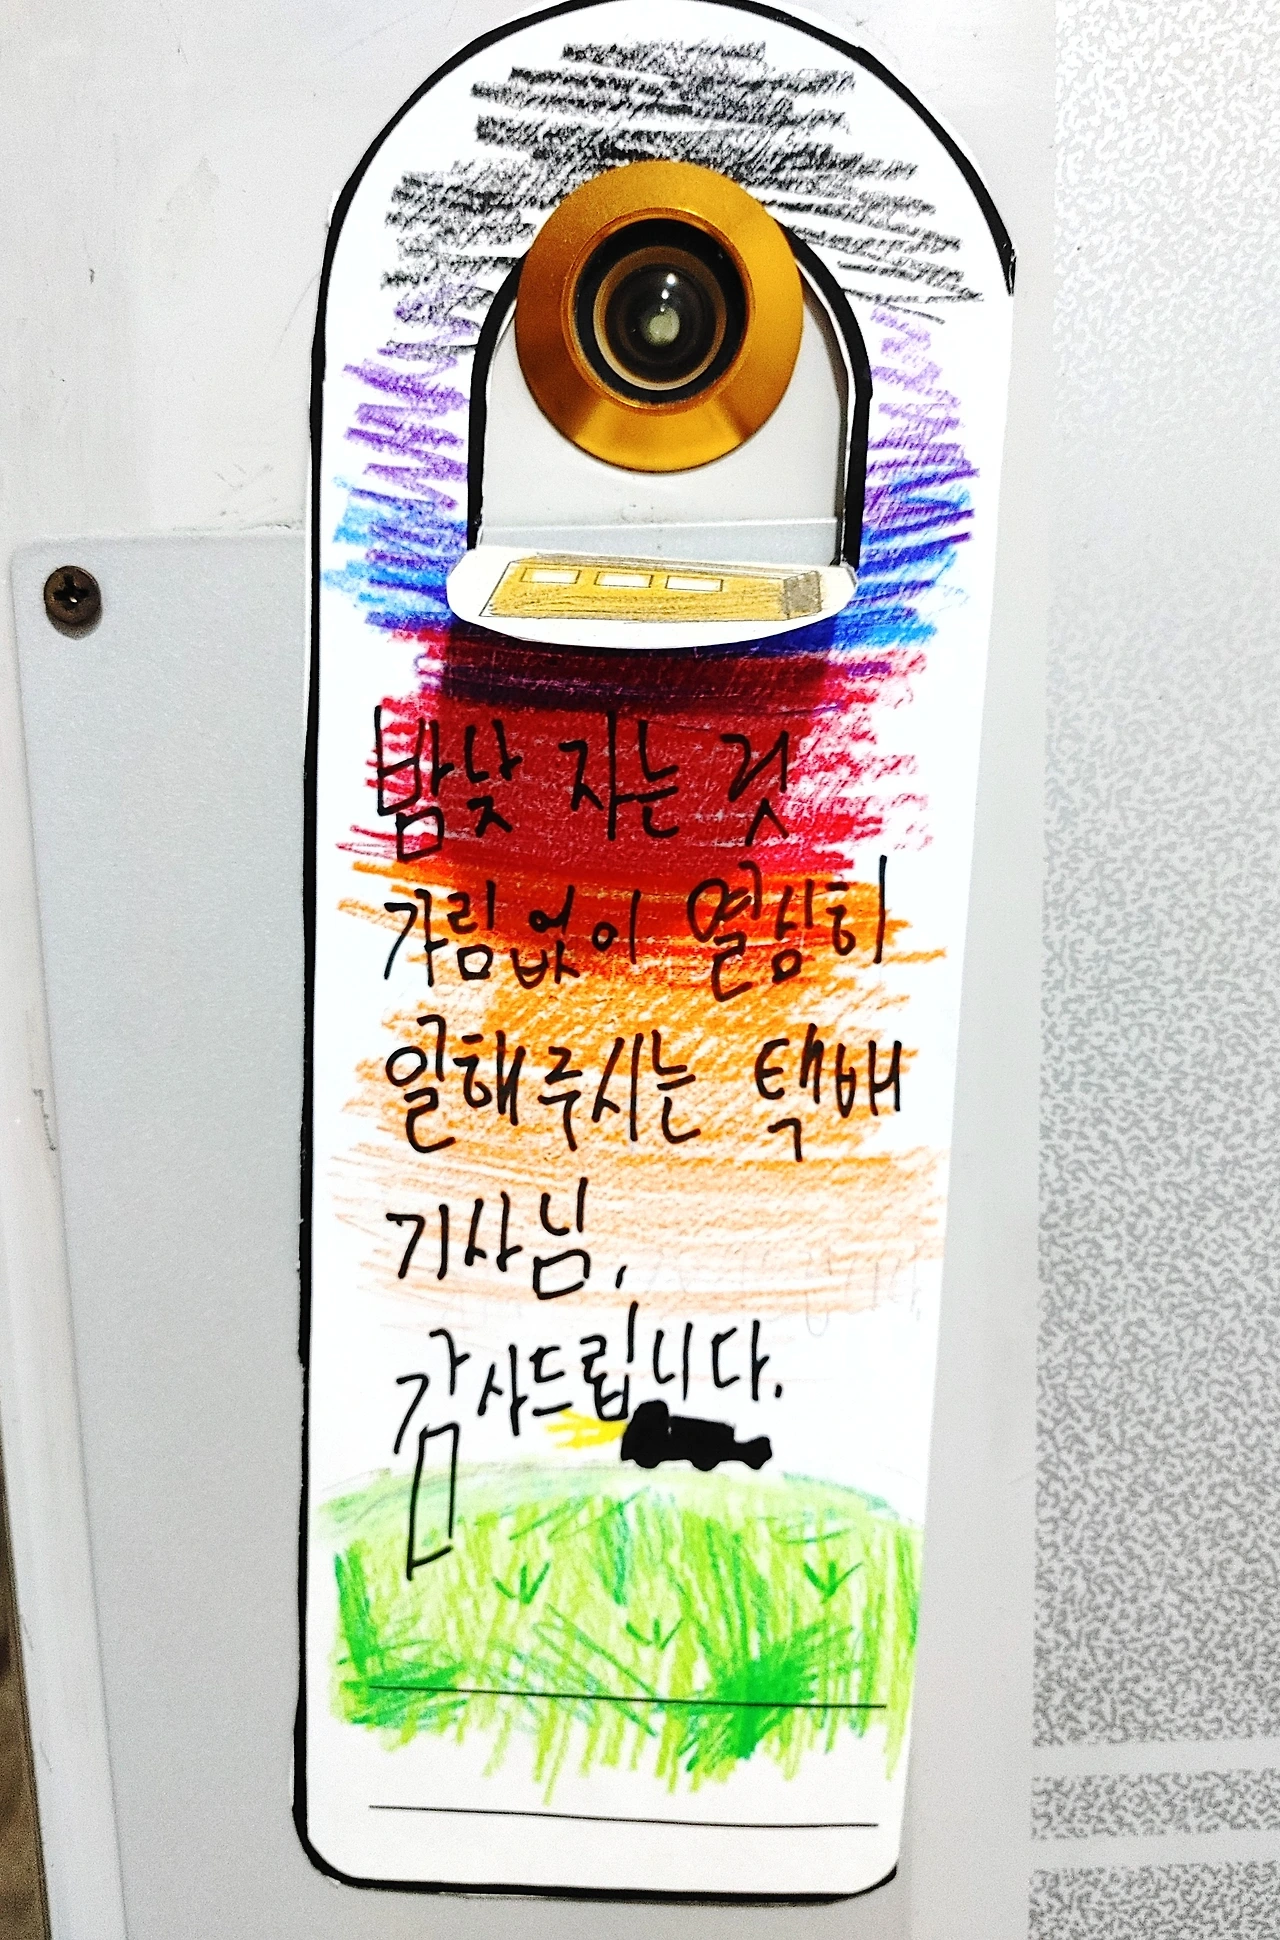 밤낮 지는 것
가림없이 열심히
일해주시는 택배
기사님,
감사드립니다.